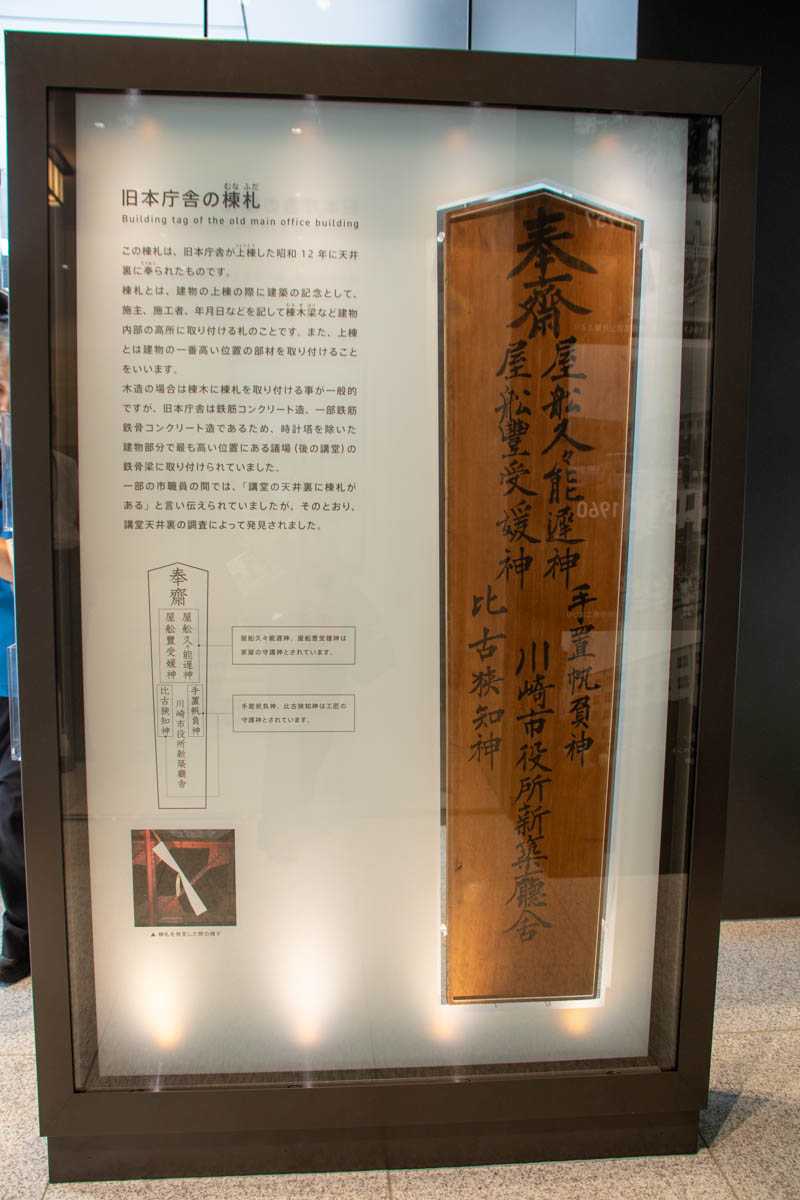 旧本庁舎の棟札
むな ふだ
Building tag of the old main office building
この棟札は、旧本庁舎が上棟した昭和 12 年に天井
裏に奉られたものです。
棟札とは、建物の上棟の際に建築の記念として、
施主、施工者、年月日などを記して棟木梁など建物
内部の高所に取り付ける札のことです。また、上棟
とは建物の一番高い位置の部材を取り付けること
をいいます。
木造の場合は棟木に棟札を取り付ける事が一般的
ですが、旧本庁舎は鉄筋コンクリート造、一部鉄筋
鉄骨コンクリート造であるため、時計塔を除いた
建物部分で最も高い位置にある議場（後の講堂）の
鉄骨梁に取り付けられていました。
一部の市職員の間では、「講堂の天井裏に棟札が
ある」と言い伝えられていましたが、そのとおり、
講堂天井裏の調査によって発見されました。
奉齋
屋船久々能遅神
屋船豊受媛神
手置帆負神
川崎市役所新築廳舎
比古狭知神
屋船久々能遅神、屋船豊受媛神は
家屋の守護神とされています。
手置帆負神、比古狭知神は工匠の
守護神とされています。
▲ 棟札を発見した際の様子
奉齋
屋船久々能遅神
屋船豐受媛神
手置帆負神
川崎市役所新築廳舎
比古狭知神
1960